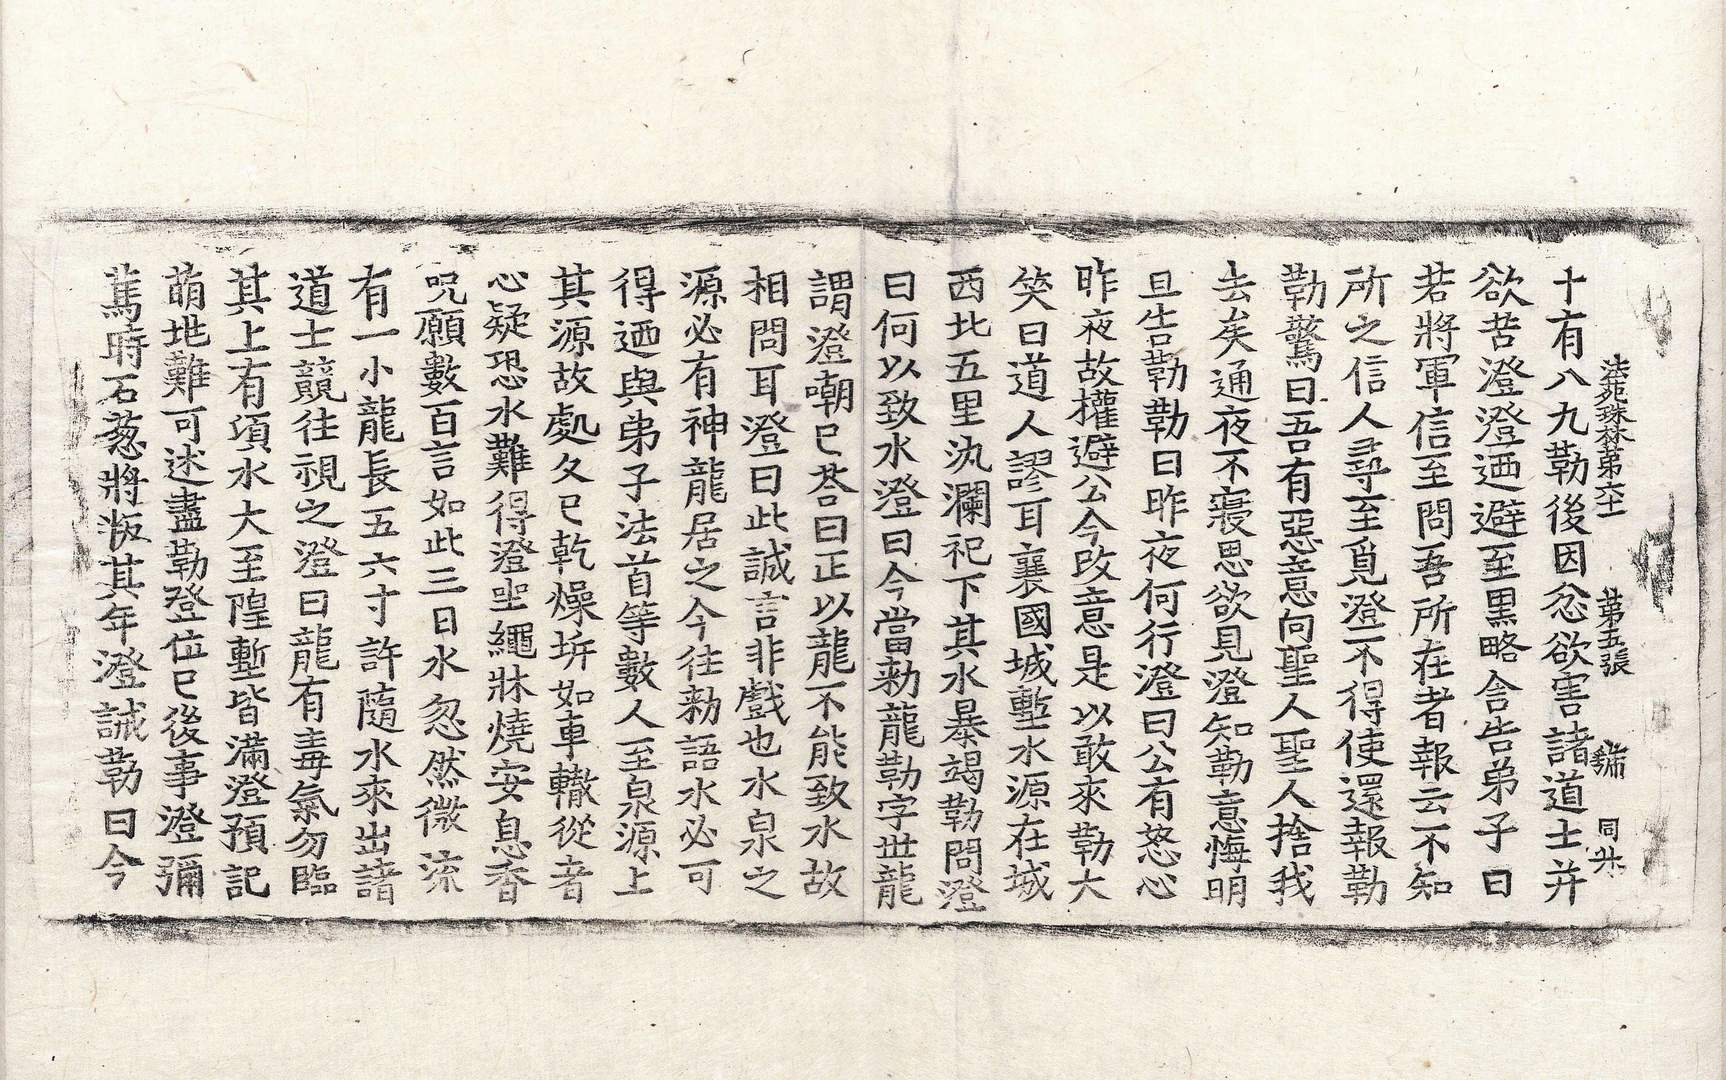 法苑珠林第六十一 第五張 𨌺 同升
十有八九勒後因忿欲害諸道士并
欲苦澄澄迺避至黑略舍告弟子曰
若將軍信至問吾所在者報云不知
所之信人尋至覓澄不得使還報勒
勒驚曰吾有惡意向聖人聖人捨我
去矣通夜不寢思欲見澄知勒意悔明
旦告勒勒曰昨夜何行澄曰公有怒心
昨夜故權避公今改意是以敢來勒大
笑曰道人謬耳襄國城塹水源在城
西北五里汍瀾祀下其水暴竭勒問澄
曰何以致水澄曰今當勑龍勒字世龍
謂澄嘲巳荅曰正以龍不能致水故
相問耳澄曰此誠言非戲也水泉之
源必有神龍居之今往勑語水必可
得迺與弟子法首等數人至泉源上
其源故處久巳乾燥坼如車轍從者
心疑恐水難得澄坐繩牀燒安息香
呪願數百言如此三日水忽然微流
有一小龍長五六寸許隨水來出諸
道士競往視之澄曰龍有毒氣勿臨
其上有頃水大至隍塹皆滿澄預記
萌地難可述盡勒登位巳後事澄彌
篤時石葱將叛其年澄誡勒曰今